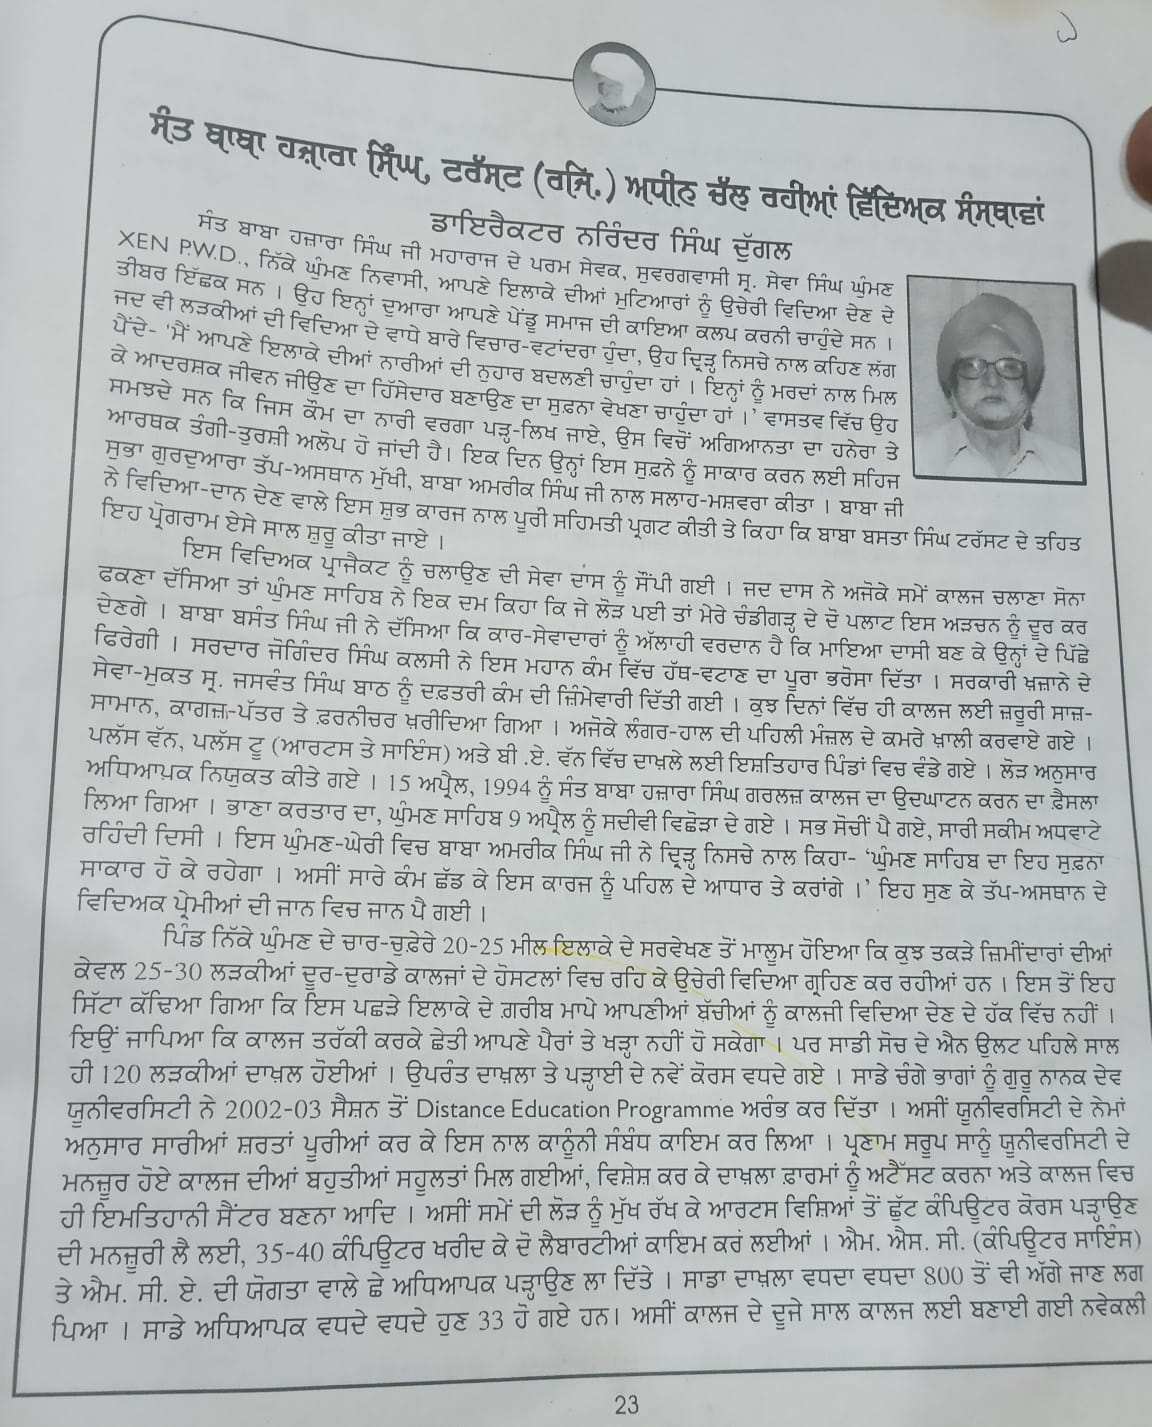 ਸੰਤ ਬਾਬਾ ਹਜ਼ਾਰਾ ਸਿੰਘ, ਟਰੱਸਟ (ਰਜਿ.) ਅਧੀਨ ਚੱਲ ਰਹੀਆਂ ਵਿੱਦਿਅਕ ਸੰਸਥਾਵਾਂ
ਡਾਇਰੈਕਟਰ ਨਰਿੰਦਰ ਸਿੰਘ ਦੁੱਗਲ
ਸੰਤ ਬਾਬਾ ਹਜ਼ਾਰਾ ਸਿੰਘ ਜੀ ਮਹਾਰਾਜ ਦੇ ਪਰਮ ਸੇਵਕ, ਸੁਵਰਗਵਾਸੀ ਸ੍ਰ. ਸੇਵਾ ਸਿੰਘ ਘੁੰਮਣ
XEN P.W.D., ਨਿੱਕੇ ਘੁੰਮਣ ਨਿਵਾਸੀ, ਆਪਣੇ ਇਲਾਕੇ ਦੀਆਂ ਮੁਟਿਆਰਾਂ ਨੂੰ ਉਚੇਰੀ ਵਿਦਿਆ ਦੇਣ ਦੇ
ਤੀਬਰ ਇੱਛਕ ਸਨ । ਉਹ ਇਨ੍ਹਾਂ ਦੁਆਰਾ ਆਪਣੇ ਪੇਂਡੂ ਸਮਾਜ ਦੀ ਕਾਇਆ ਕਲਪ ਕਰਨੀ ਚਾਹੁੰਦੇ ਸਨ ।
ਜਦ ਵੀ ਲੜਕੀਆਂ ਦੀ ਵਿਦਿਆ ਦੇ ਵਾਧੇ ਬਾਰੇ ਵਿਚਾਰ-ਵਟਾਂਦਰਾ ਹੁੰਦਾ, ਉਹ ਦ੍ਰਿੜ੍ਹ ਨਿਸਚੇ ਨਾਲ ਕਹਿਣ ਲੱਗ
ਪੈਂਦੇ- 'ਮੈਂ ਆਪਣੇ ਇਲਾਕੇ ਦੀਆਂ ਨਾਰੀਆਂ ਦੀ ਨੁਹਾਰ ਬਦਲਣੀ ਚਾਹੁੰਦਾ ਹਾਂ । ਇਨ੍ਹਾਂ ਨੂੰ ਮਰਦਾਂ ਨਾਲ ਮਿਲ
ਕੇ ਆਦਰਸ਼ਕ ਜੀਵਨ ਜੀਉਣ ਦਾ ਹਿੱਸੇਦਾਰ ਬਣਾਉਣ ਦਾ ਸੁਫ਼ਨਾ ਵੇਖਣਾ ਚਾਹੁੰਦਾ ਹਾਂ ।' ਵਾਸਤਵ ਵਿੱਚ ਉਹ
ਸਮਝਦੇ ਸਨ ਕਿ ਜਿਸ ਕੌਮ ਦਾ ਨਾਰੀ ਵਰਗਾ ਪੜ੍ਹ-ਲਿਖ ਜਾਏ, ਉਸ ਵਿਚੋਂ ਅਗਿਆਨਤਾ ਦਾ ਹਨੇਰਾ ਤੇ
ਆਰਥਕ ਤੰਗੀ-ਤੁਰਸ਼ੀ ਅਲੋਪ ਹੋ ਜਾਂਦੀ ਹੈ। ਇਕ ਦਿਨ ਉਨ੍ਹਾਂ ਇਸ ਸੁਫ਼ਨੇ ਨੂੰ ਸਾਕਾਰ ਕਰਨ ਲਈ ਸਹਿਜ
ਸੁਭਾ ਗੁਰਦੁਆਰਾ ਤੱਪ-ਅਸਥਾਨ ਮੁੱਖੀ, ਬਾਬਾ ਅਮਰੀਕ ਸਿੰਘ ਜੀ ਨਾਲ ਸਲਾਹ-ਮਸ਼ਵਰਾ ਕੀਤਾ । ਬਾਬਾ ਜੀ
ਨੇ ਵਿਦਿਆ-ਦਾਨ ਦੇਣ ਵਾਲੇ ਇਸ ਸ਼ੁਭ ਕਾਰਜ ਨਾਲ ਪੂਰੀ ਸਹਿਮਤੀ ਪ੍ਰਗਟ ਕੀਤੀ ਤੇ ਕਿਹਾ ਕਿ ਬਾਬਾ ਬਸਤਾ ਸਿੰਘ ਟਰੱਸਟ ਦੇ ਤਹਿਤ
ਇਹ ਪ੍ਰੋਗਰਾਮ ਏਸੇ ਸਾਲ ਸ਼ੁਰੂ ਕੀਤਾ ਜਾਏ ।
ਇਸ ਵਿਦਿਅਕ ਪ੍ਰਾਜੈਕਟ ਨੂੰ ਚਲਾਉਣ ਦੀ ਸੇਵਾ ਦਾਸ ਨੂੰ ਸੌਂਪੀ ਗਈ । ਜਦ ਦਾਸ ਨੇ ਅਜੋਕੇ ਸਮੇਂ ਕਾਲਜ ਚਲਾਣਾ ਸੋਨਾ
ਫਕਣਾ ਦੱਸਿਆ ਤਾਂ ਘੁੰਮਣ ਸਾਹਿਬ ਨੇ ਇਕ ਦਮ ਕਿਹਾ ਕਿ ਜੇ ਲੋੜ ਪਈ ਤਾਂ ਮੇਰੇ ਚੰਡੀਗੜ੍ਹ ਦੇ ਦੋ ਪਲਾਟ ਇਸ ਅੜਚਨ ਨੂੰ ਦੂਰ ਕਰ
ਦੇਣਗੇ । ਬਾਬਾ ਬਸੰਤ ਸਿੰਘ ਜੀ ਨੇ ਦੱਸਿਆ ਕਿ ਕਾਰ-ਸੇਵਾਦਾਰਾਂ ਨੂੰ ਅੱਲਾਹੀ ਵਰਦਾਨ ਹੈ ਕਿ ਮਾਇਆ ਦਾਸੀ ਬਣ ਕੇ ਉਨ੍ਹਾਂ ਦੇ ਪਿੱਛੇ
ਫਿਰੇਗੀ । ਸਰਦਾਰ ਜੋਗਿੰਦਰ ਸਿੰਘ ਕਲਸੀ ਨੇ ਇਸ ਮਹਾਨ ਕੰਮ ਵਿੱਚ ਹੱਥ-ਵਟਾਣ ਦਾ ਪੂਰਾ ਭਰੋਸਾ ਦਿੱਤਾ । ਸਰਕਾਰੀ ਖ਼ਜ਼ਾਨੇ ਦੇ
ਸੇਵਾ-ਮੁਕਤ ਸ੍ਰ. ਜਸਵੰਤ ਸਿੰਘ ਬਾਠ ਨੂੰ ਦਫ਼ਤਰੀ ਕੰਮ ਦੀ ਜ਼ਿੰਮੇਵਾਰੀ ਦਿੱਤੀ ਗਈ । ਕੁਝ ਦਿਨਾਂ ਵਿੱਚ ਹੀ ਕਾਲਜ ਲਈ ਜ਼ਰੂਰੀ ਸਾਜ਼-
ਸਾਮਾਨ, ਕਾਗਜ਼-ਪੱਤਰ ਤੇ ਫ਼ਰਨੀਚਰ ਖ਼ਰੀਦਿਆ ਗਿਆ । ਅਜੋਕੇ ਲੰਗਰ-ਹਾਲ ਦੀ ਪਹਿਲੀ ਮੰਜ਼ਲ ਦੇ ਕਮਰੇ ਖ਼ਾਲੀ ਕਰਵਾਏ ਗਏ ।
ਪਲੱਸ ਵੱਨ, ਪਲੱਸ ਟੂ (ਆਰਟਸ ਤੇ ਸਾਇੰਸ) ਅਤੇ ਬੀ .ਏ. ਵੱਨ ਵਿੱਚ ਦਾਖ਼ਲੇ ਲਈ ਇਸ਼ਤਿਹਾਰ ਪਿੰਡਾਂ ਵਿਚ ਵੰਡੇ ਗਏ । ਲੋੜ ਅਨੁਸਾਰ
ਅਧਿਆਪਕ ਨਿਯੁਕਤ ਕੀਤੇ ਗਏ । 15 ਅਪ੍ਰੈਲ, 1994 ਨੂੰ ਸੰਤ ਬਾਬਾ ਹਜ਼ਾਰਾ ਸਿੰਘ ਗਰਲਜ਼ ਕਾਲਜ ਦਾ ਉਦਘਾਟਨ ਕਰਨ ਦਾ ਫ਼ੈਸਲਾ
ਲਿਆ ਗਿਆ । ਭਾਣਾ ਕਰਤਾਰ ਦਾ, ਘੁੰਮਣ ਸਾਹਿਬ 9 ਅਪ੍ਰੈਲ ਨੂੰ ਸਦੀਵੀ ਵਿਛੋੜਾ ਦੇ ਗਏ । ਸਭ ਸੋਚੀਂ ਪੈ ਗਏ, ਸਾਰੀ ਸਕੀਮ ਅਧਵਾਟੇ
ਰਹਿੰਦੀ ਦਿਸੀ । ਇਸ ਘੁੰਮਣ-ਘੇਰੀ ਵਿਚ ਬਾਬਾ ਅਮਰੀਕ ਸਿੰਘ ਜੀ ਨੇ ਦ੍ਰਿੜ੍ਹ ਨਿਸਚੇ ਨਾਲ ਕਿਹਾ- 'ਘੁੰਮਣ ਸਾਹਿਬ ਦਾ ਇਹ ਸੁਫ਼ਨਾ
ਸਾਕਾਰ ਹੋ ਕੇ ਰਹੇਗਾ । ਅਸੀਂ ਸਾਰੇ ਕੰਮ ਛੱਡ ਕੇ ਇਸ ਕਾਰਜ ਨੂੰ ਪਹਿਲ ਦੇ ਆਧਾਰ ਤੇ ਕਰਾਂਗੇ ।' ਇਹ ਸੁਣ ਕੇ ਤੱਪ-ਅਸਥਾਨ ਦੇ
ਵਿਦਿਅਕ ਪ੍ਰੇਮੀਆਂ ਦੀ ਜਾਨ ਵਿਚ ਜਾਨ ਪੈ ਗਈ ।
ਪਿੰਡ ਨਿੱਕੇ ਘੁੰਮਣ ਦੇ ਚਾਰ-ਚੁਫ਼ੇਰੇ 20-25 ਮੀਲ ਇਲਾਕੇ ਦੇ ਸਰਵੇਖਣ ਤੋਂ ਮਾਲੂਮ ਹੋਇਆ ਕਿ ਕੁਝ ਤਕੜੇ ਜ਼ਿਮੀਂਦਾਰਾਂ ਦੀਆਂ
ਕੇਵਲ 25-30 ਲੜਕੀਆਂ ਦੂਰ-ਦੁਰਾਡੇ ਕਾਲਜਾਂ ਦੇ ਹੋਸਟਲਾਂ ਵਿਚ ਰਹਿ ਕੇ ਉਚੇਰੀ ਵਿਦਿਆ ਗ੍ਰਹਿਣ ਕਰ ਰਹੀਆਂ ਹਨ । ਇਸ ਤੋਂ ਇਹ
ਸਿੱਟਾ ਕੱਢਿਆ ਗਿਆ ਕਿ ਇਸ ਪਛੜੇ ਇਲਾਕੇ ਦੇ ਗ਼ਰੀਬ ਮਾਪੇ ਆਪਣੀਆਂ ਬੱਚੀਆਂ ਨੂੰ ਕਾਲਜੀ ਵਿਦਿਆ ਦੇਣ ਦੇ ਹੱਕ ਵਿੱਚ ਨਹੀਂ ।
ਇਉਂ ਜਾਪਿਆ ਕਿ ਕਾਲਜ ਤਰੱਕੀ ਕਰਕੇ ਛੇਤੀ ਆਪਣੇ ਪੈਰਾਂ ਤੇ ਖੜ੍ਹਾ ਨਹੀਂ ਹੋ ਸਕੇਗਾ । ਪਰ ਸਾਡੀ ਸੋਚ ਦੇ ਐਨ ਉਲਟ ਪਹਿਲੇ ਸਾਲ
ਹੀ 120 ਲੜਕੀਆਂ ਦਾਖ਼ਲ ਹੋਈਆਂ । ਉਪਰੰਤ ਦਾਖ਼ਲਾ ਤੇ ਪੜ੍ਹਾਈ ਦੇ ਨਵੇਂ ਕੋਰਸ ਵਧਦੇ ਗਏ । ਸਾਡੇ ਚੰਗੇ ਭਾਗਾਂ ਨੂੰ ਗੁਰੂ ਨਾਨਕ ਦੇਵ
ਯੂਨੀਵਰਸਿਟੀ ਨੇ 2002-03 ਸੈਸ਼ਨ ਤੋਂ Distance Education Programme ਅਰੰਭ ਕਰ ਦਿੱਤਾ । ਅਸੀਂ ਯੂਨੀਵਰਸਿਟੀ ਦੇ ਨੇਮਾਂ
ਅਨੁਸਾਰ ਸਾਰੀਆਂ ਸ਼ਰਤਾਂ ਪੂਰੀਆਂ ਕਰ ਕੇ ਇਸ ਨਾਲ ਕਾਨੂੰਨੀ ਸੰਬੰਧ ਕਾਇਮ ਕਰ ਲਿਆ । ਪ੍ਰਣਾਮ ਸਰੂਪ ਸਾਨੂੰ ਯੂਨੀਵਰਸਿਟੀ ਦੇ
ਮਨਜ਼ੂਰ ਹੋਏ ਕਾਲਜ ਦੀਆਂ ਬਹੁਤੀਆਂ ਸਹੂਲਤਾਂ ਮਿਲ ਗਈਆਂ, ਵਿਸ਼ੇਸ਼ ਕਰ ਕੇ ਦਾਖ਼ਲਾ ਫ਼ਾਰਮਾਂ ਨੂੰ ਅਟੈੱਸਟ ਕਰਨਾ ਅਤੇ ਕਾਲਜ ਵਿਚ
ਹੀ ਇਮਤਿਹਾਨੀ ਸੈਂਟਰ ਬਣਨਾ ਆਦਿ । ਅਸੀਂ ਸਮੇਂ ਦੀ ਲੋੜ ਨੂੰ ਮੁੱਖ ਰੱਖ ਕੇ ਆਰਟਸ ਵਿਸ਼ਿਆਂ ਤੋਂ ਛੁੱਟ ਕੰਪਿਊਟਰ ਕੋਰਸ ਪੜ੍ਹਾਉਣ
ਦੀ ਮਨਜ਼ੂਰੀ ਲੈ ਲਈ, 35-40 ਕੰਪਿਊਟਰ ਖਰੀਦ ਕੇ ਦੋ ਲੈਬਾਰਟੀਆਂ ਕਾਇਮ ਕਰ ਲਈਆਂ । ਐਮ. ਐਸ. ਸੀ. (ਕੰਪਿਊਟਰ ਸਾਇੰਸ)
ਤੇ ਐਮ. ਸੀ. ਏ. ਦੀ ਯੋਗਤਾ ਵਾਲੇ ਛੇ ਅਧਿਆਪਕ ਪੜ੍ਹਾਉਣ ਲਾ ਦਿੱਤੇ । ਸਾਡਾ ਦਾਖ਼ਲਾ ਵਧਦਾ ਵਧਦਾ 800 ਤੋਂ ਵੀ ਅੱਗੇ ਜਾਣ ਲਗ
ਪਿਆ । ਸਾਡੇ ਅਧਿਆਪਕ ਵਧਦੇ ਵਧਦੇ ਹੁਣ 33 ਹੋ ਗਏ ਹਨ। ਅਸੀਂ ਕਾਲਜ ਦੇ ਦੂਜੇ ਸਾਲ ਕਾਲਜ ਲਈ ਬਣਾਈ ਗਈ ਨਵੇਕਲੀ
23